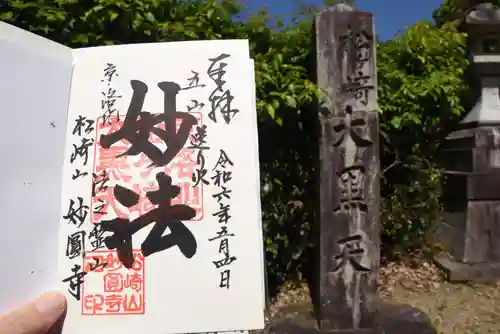 奉拝
五山送り火
令和六年五月四日
妙法
京洛北
法之霊山
松崎山妙圓寺
松崎山
妙圓寺
印
松崎大黒天